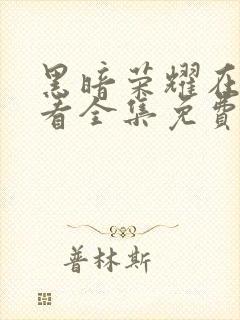 黑暗荣耀在
看全集免費
普林斯